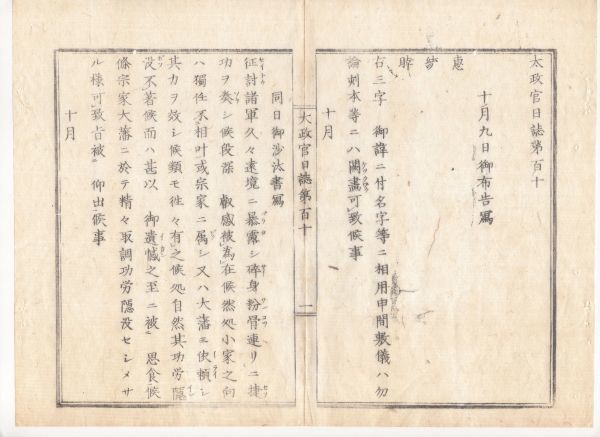 太政官日誌第百十
十月九日御布告寫
惠 統 睦
右三字 御諱ニ付名字等ニ相用申間敷儀ハ勿
論刻本等ニハ闕畫可致候事
十月
太政官日誌第百十 一
同日御沙汰書寫
征討諸軍久々遠境ニ暴露シ碎身粉骨速リニ捷
功ヲ奏シ候段深 叡感被爲在候然処小家之向
ハ獨任不相叶或宗家ニ属シ又ハ大藩ニ依頼シ
其力ヲ效シ候類モ徃々有之候処自然其功労隠
没不著候而ハ甚以 御遺憾之至ニ被 思食候
條宗家大藩ニ於テ精々取調功労隠没セシメサ
ル様可致旨被 仰出候事
十月